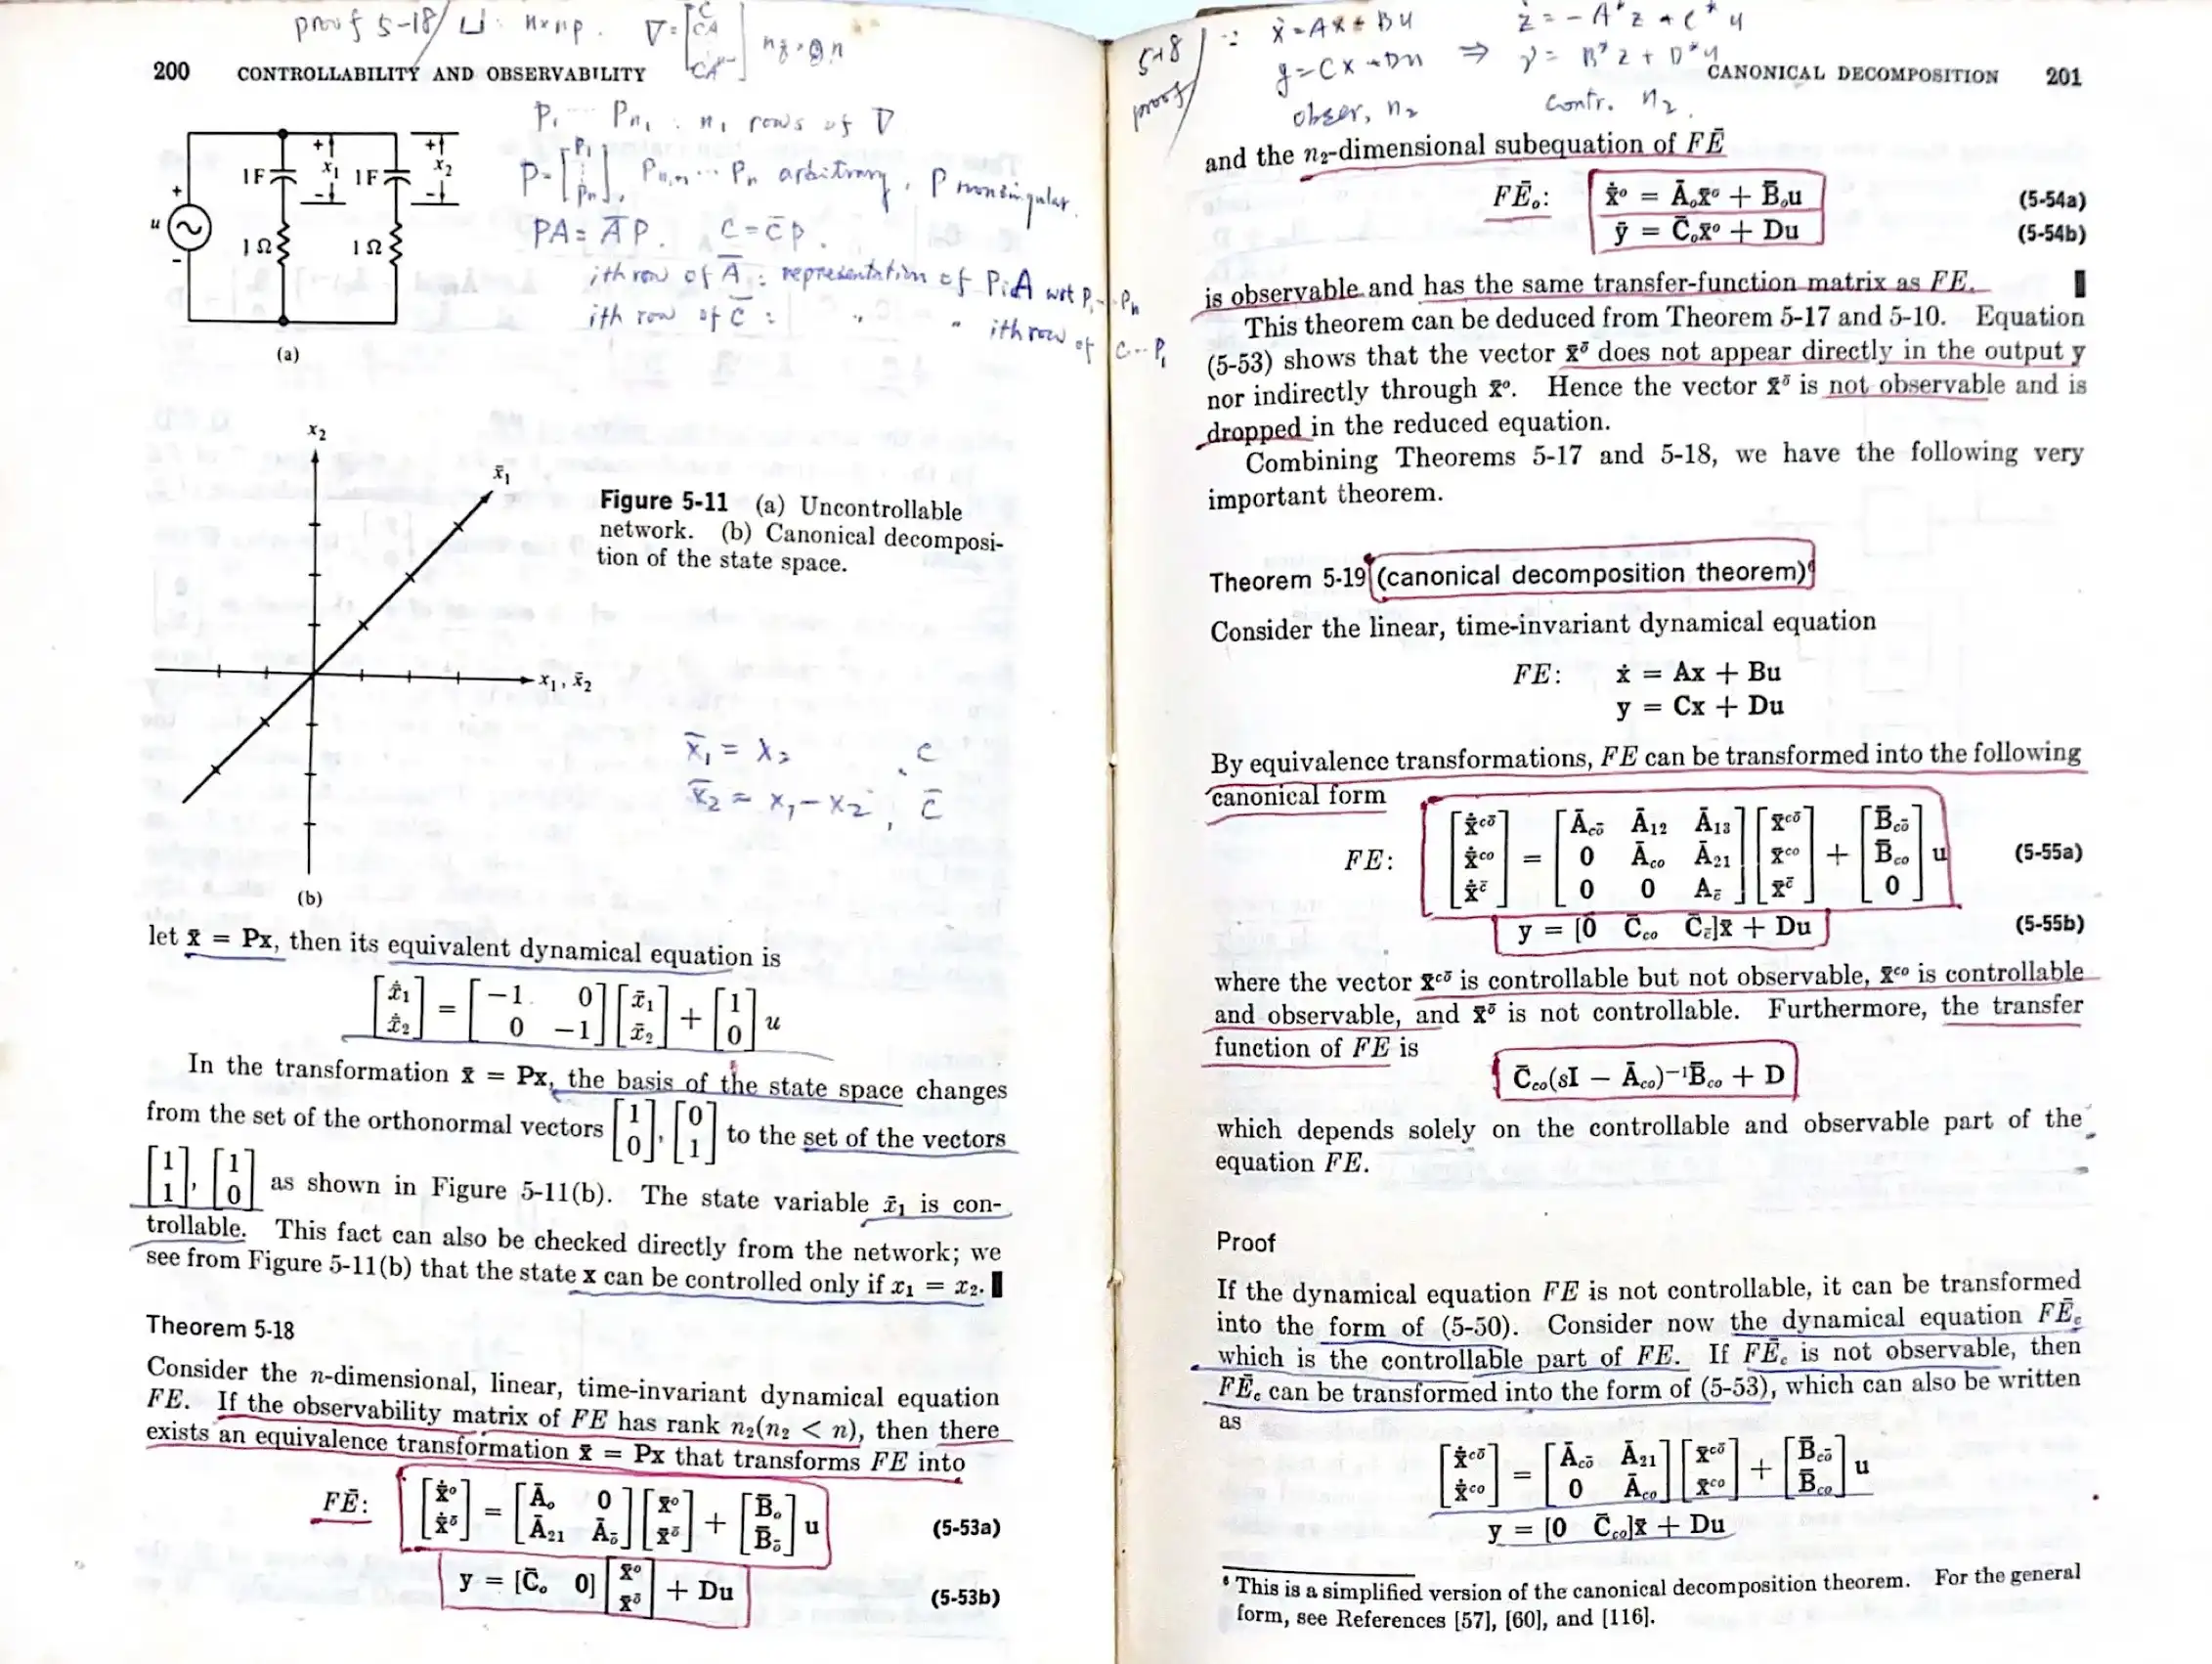 proof 5-18/ U: n×np. V = [C CA ⋮ CA] nq × n
200 CONTROLLABILITY AND OBSERVABILITY
P₁ ... Pn₁ : n₁ rows of V
P = [P₁ ⋮ Pn], ... Pn arbitrary, P nonsingular.
PA = ĀP. C = C̄P.
ith row of Ā : representation of PᵢA wrt P₁ ... Pn
ith row of C̄ : " " ith row of C ... P₁
u + − 1F 1F 1Ω 1Ω + x₁ − + x₂ −
(a)
x₂
x̄₁
x₁, x̄₂
Figure 5-11 (a) Uncontrollable
network. (b) Canonical decomposi-
tion of the state space.
x̄₁ = x₂ , C
x̄₂ = x₁ − x₂ , C̄
(b)
let x̄ = Px, then its equivalent dynamical equation is
[x̄̇₁ x̄̇₂] = [−1 0 0 −1] [x̄₁ x̄₂] + [1 0] u
In the transformation x̄ = Px, the basis of the state space changes
from the set of the orthonormal vectors [1 0], [0 1] to the set of the vectors
[1 1], [1 0] as shown in Figure 5-11(b). The state variable x̄₁ is con-
trollable. This fact can also be checked directly from the network; we
see from Figure 5-11(b) that the state x can be controlled only if x₁ = x₂.
Theorem 5-18
Consider the n-dimensional, linear, time-invariant dynamical equation
FE. If the observability matrix of FE has rank n₂(n₂ < n), then there
exists an equivalence transformation x̄ = Px that transforms FE into
FĒ: [x̄̇ᵒ x̄̇ᵒ̄] = [Āₒ 0 Ā₂₁ Āₒ̄] [x̄ᵒ x̄ᵒ̄] + [B̄ₒ B̄ₒ̄] u (5-53a)
y = [C̄ₒ 0] [x̄ᵒ x̄ᵒ̄] + Du (5-53b)
5-18 proof/ ∵ ẋ = Ax + Bu ż = −A*z + C*u
y = Cx + Du ⇒ γ = B*z + D*u
obser, n₂ contr. n₂.
CANONICAL DECOMPOSITION 201
and the n₂-dimensional subequation of FĒ
FĒₒ: x̄̇ᵒ = Āₒx̄ᵒ + B̄ₒu (5-54a)
ȳ = C̄ₒx̄ᵒ + Du (5-54b)
is observable and has the same transfer-function matrix as FE.
This theorem can be deduced from Theorem 5-17 and 5-10. Equation
(5-53) shows that the vector x̄ᵒ̄ does not appear directly in the output y
nor indirectly through x̄ᵒ. Hence the vector x̄ᵒ̄ is not observable and is
dropped in the reduced equation.
Combining Theorems 5-17 and 5-18, we have the following very
important theorem.
Theorem 5-19 (canonical decomposition theorem)⁶
Consider the linear, time-invariant dynamical equation
FE: ẋ = Ax + Bu
y = Cx + Du
By equivalence transformations, FE can be transformed into the following
canonical form
FE: [x̄̇ᶜᵒ̄ x̄̇ᶜᵒ x̄̇ᶜ̄] = [Ā_cō Ā₁₂ Ā₁₃ 0 Ā_co Ā₂₁ 0 0 A_c̄] [x̄ᶜᵒ̄ x̄ᶜᵒ x̄ᶜ̄] + [B̄_cō B̄_co 0] u (5-55a)
y = [0 C̄_co C̄_c̄]x̄ + Du (5-55b)
where the vector x̄ᶜᵒ̄ is controllable but not observable, x̄ᶜᵒ is controllable
and observable, and x̄ᵒ̄ is not controllable. Furthermore, the transfer
function of FE is
C̄_co(sI − Ā_co)⁻¹B̄_co + D
which depends solely on the controllable and observable part of the
equation FE.
Proof
If the dynamical equation FE is not controllable, it can be transformed
into the form of (5-50). Consider now the dynamical equation FĒ_c
which is the controllable part of FE. If FĒ_c is not observable, then
FĒ_c can be transformed into the form of (5-53), which can also be written
as
[x̄̇ᶜᵒ̄ x̄̇ᶜᵒ] = [Ā_cō Ā₂₁ 0 Ā_co] [x̄ᶜᵒ̄ x̄ᶜᵒ] + [B̄_cō B̄_co] u
y = [0 C̄_co]x̄ + Du
⁶ This is a simplified version of the canonical decomposition theorem. For the general
form, see References [57], [60], and [116].